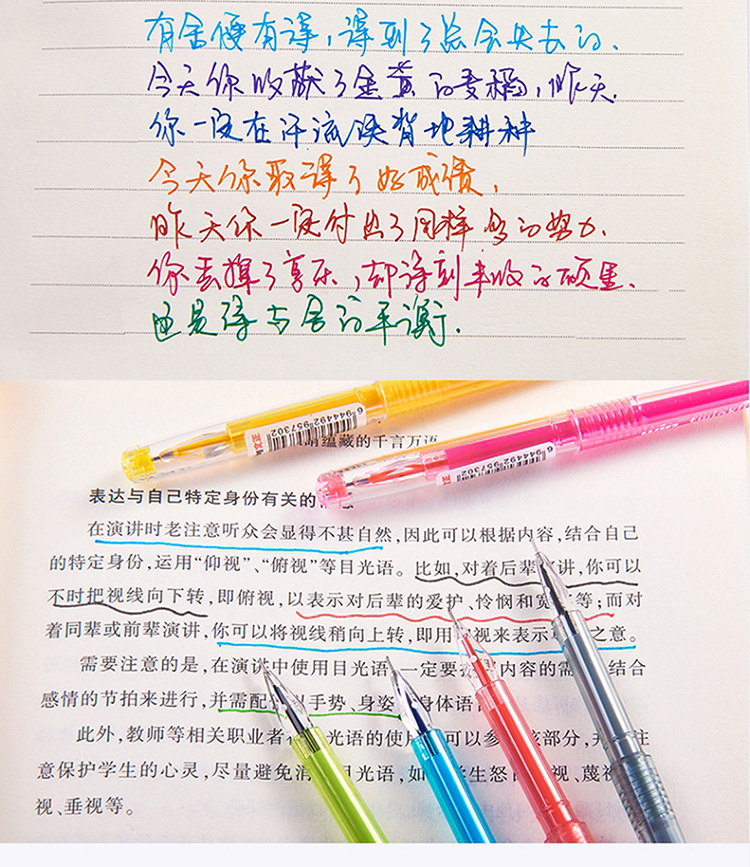 有舍便有得，得到了总会失去的、
今天你收获了金黄的麦稻，昨天、
你一定在汗流浃背地耕种
今天你取得了好成绩，
昨天你一定付出了同样多的努力、
你丢掉了享乐，却得到丰收的硕果、
也是得与舍的平衡.
6944492957302
6944492957302
蕴藏的千言万语
表达与自己特定身份有关的
在演讲时老注意听众会显得不甚自然，因此可以根据内容，结合自己
的特定身份，运用“仰视”、“俯视”等目光语。比如，对着后辈讲，你可以
不时把视线向下转，即俯视，以表示对后辈的爱护、怜悯和宽等；而对
着同辈或前辈演讲，你可以将视线稍向上转，即用视来表示之意。
需要注意的是，在演讲中使用目光语一定要内容的需结合
感情的节拍来进行，并需配以手势、身姿身体语
此外，教师等相关职业者光语的使可以参该部分，注
意保护学生的心灵，尽量避免消目光语，如学生怒视、蔑
视、垂视等。